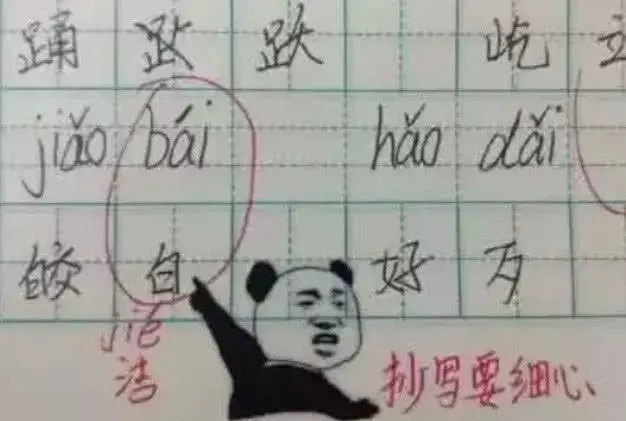 踊 跃 屹 立
jiǎo bái hǎo dǎi
皎 白 好 歹
jié
洁
抄写要细心、